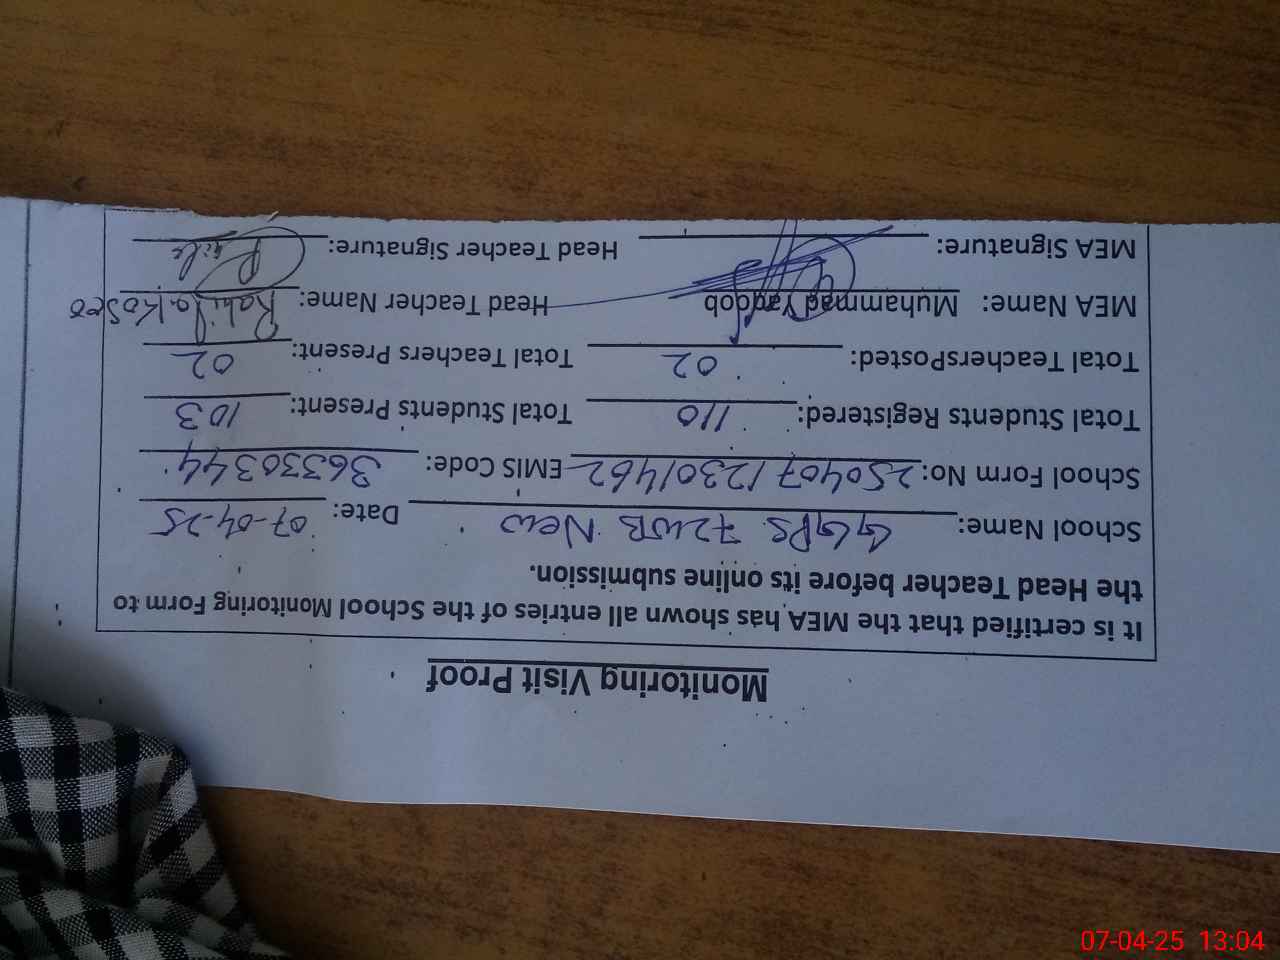 Monitoring Visit Proof
It is certified that the MEA has shown all entries of the School Monitoring Form to
the Head Teacher before its online submission.
School Name: GGPS 72WB New Date: 07-04-25
School Form No: 250407 12301462 EMIS Code: 36330344
Total Students Registered: 110 Total Students Present: 103
Total TeachersPosted: 02 Total Teachers Present: 02
MEA Name: Muhammad Yaqoob Head Teacher Name: Rahila
MEA Signature: Head Teacher Signature:
07-04-25 13:04